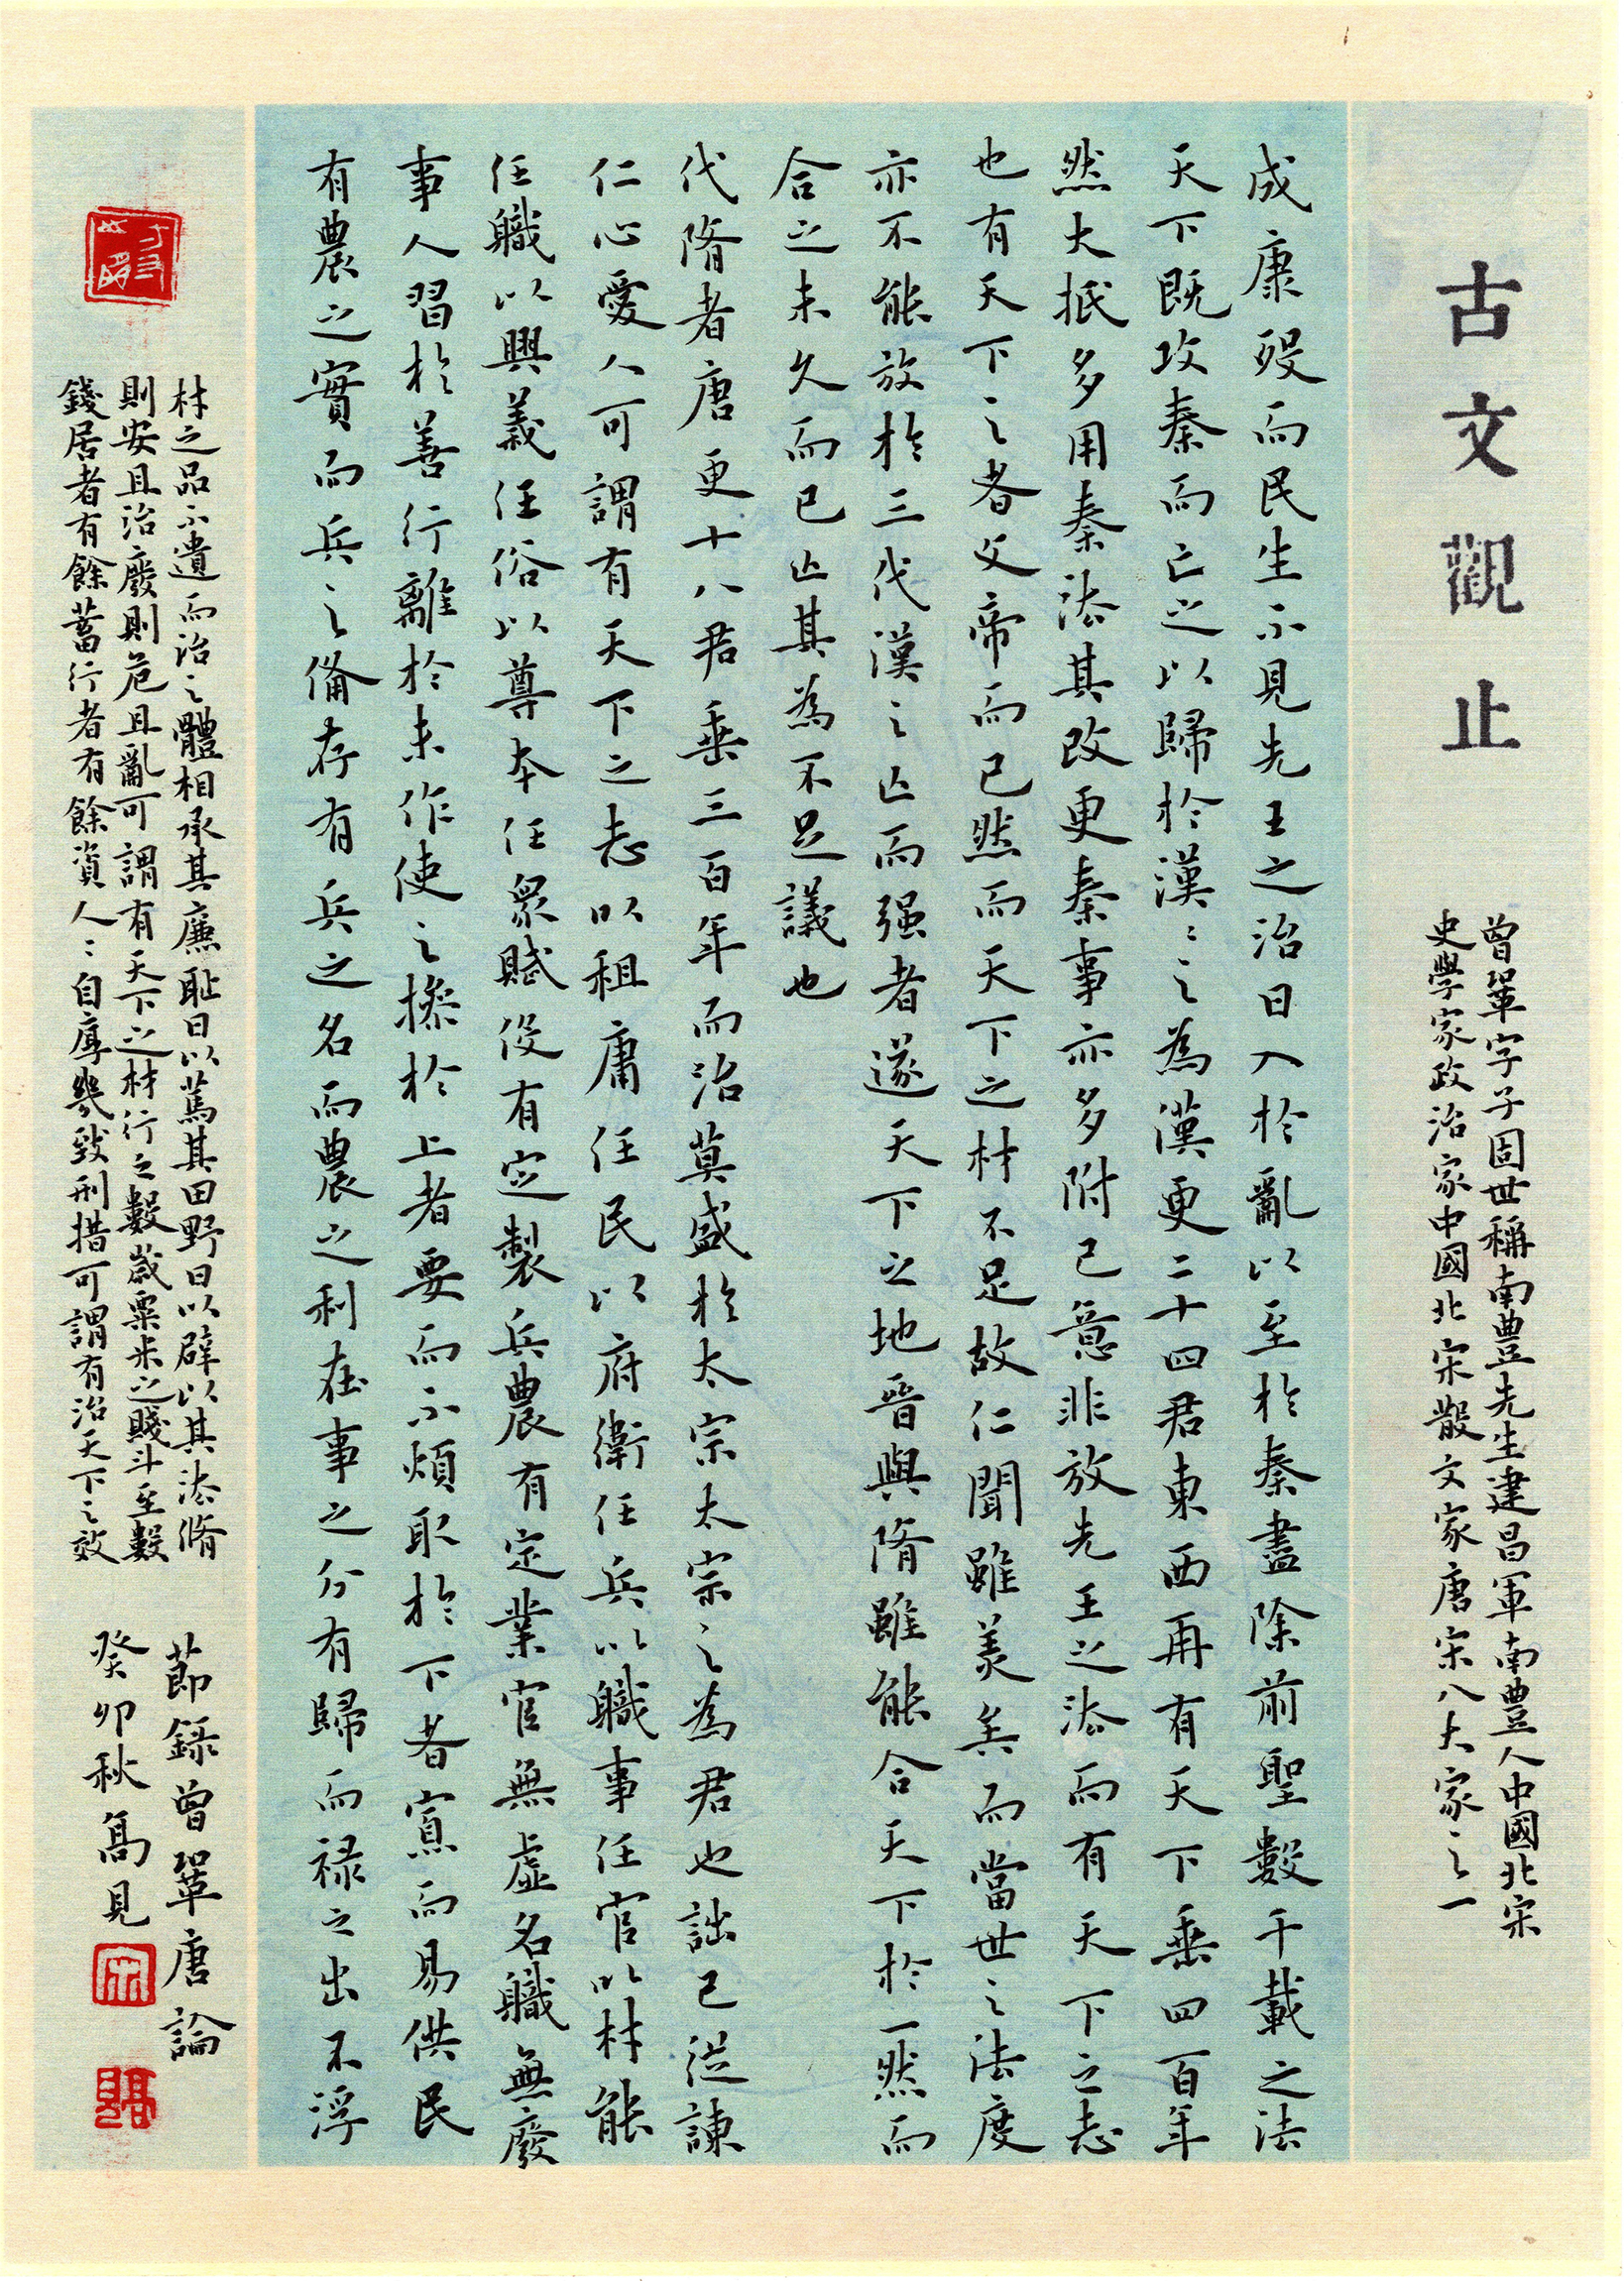 古文觀止
曾鞏字子固世稱南豐先生建昌軍南豐人中國北宋
史學家政治家中國北宋散文家唐宋八大家之一
成康殁而民生不見先王之治日入於亂以至於秦盡除前聖數千載之法
天下既攻秦而亡之以歸於漢漢之為漢更二十四君東西再有天下垂四百年
然大抵多用秦法其改更秦事亦多附己意非放先王之法而有天下之志
也有天下之者文帝而已然而天下之材不足故仁聞雖美矣而當世之法度
亦不能放於三代漢之亡而强者遂天下之地晉與隋雖能合天下於一然而
合之未久而已亡其為不足議也
代隋者唐更十八君垂三百年而治莫盛於太宗太宗之為君也詘己從諫
仁心愛人可謂有天下之志以租庸任民以府衛任兵以職事任官以材能
任職以興義任俗以尊本任眾賦役有定製兵農有定業官無虛名職無廢
事人習於善行離於末作使之操於上者要而不煩取於下者寡而易供民
有農之實而兵之備存有兵之名而農之利在事之分有歸而禄之出不浮
材之品不遺而治之體相承其廉恥日以篤其田野日以辟以其法脩
則安且治廢則危且亂可謂有天下之材行之數歲粟米之賤斗至數
錢居者有餘蓄行者有餘資人人自厚幾致刑措可謂有治天下之效
節録曾鞏唐論
癸卯秋高見